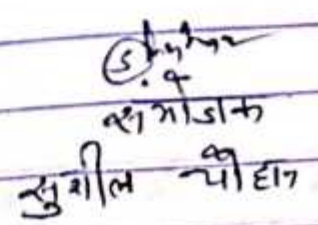 संयोजक
सुशील चौहान